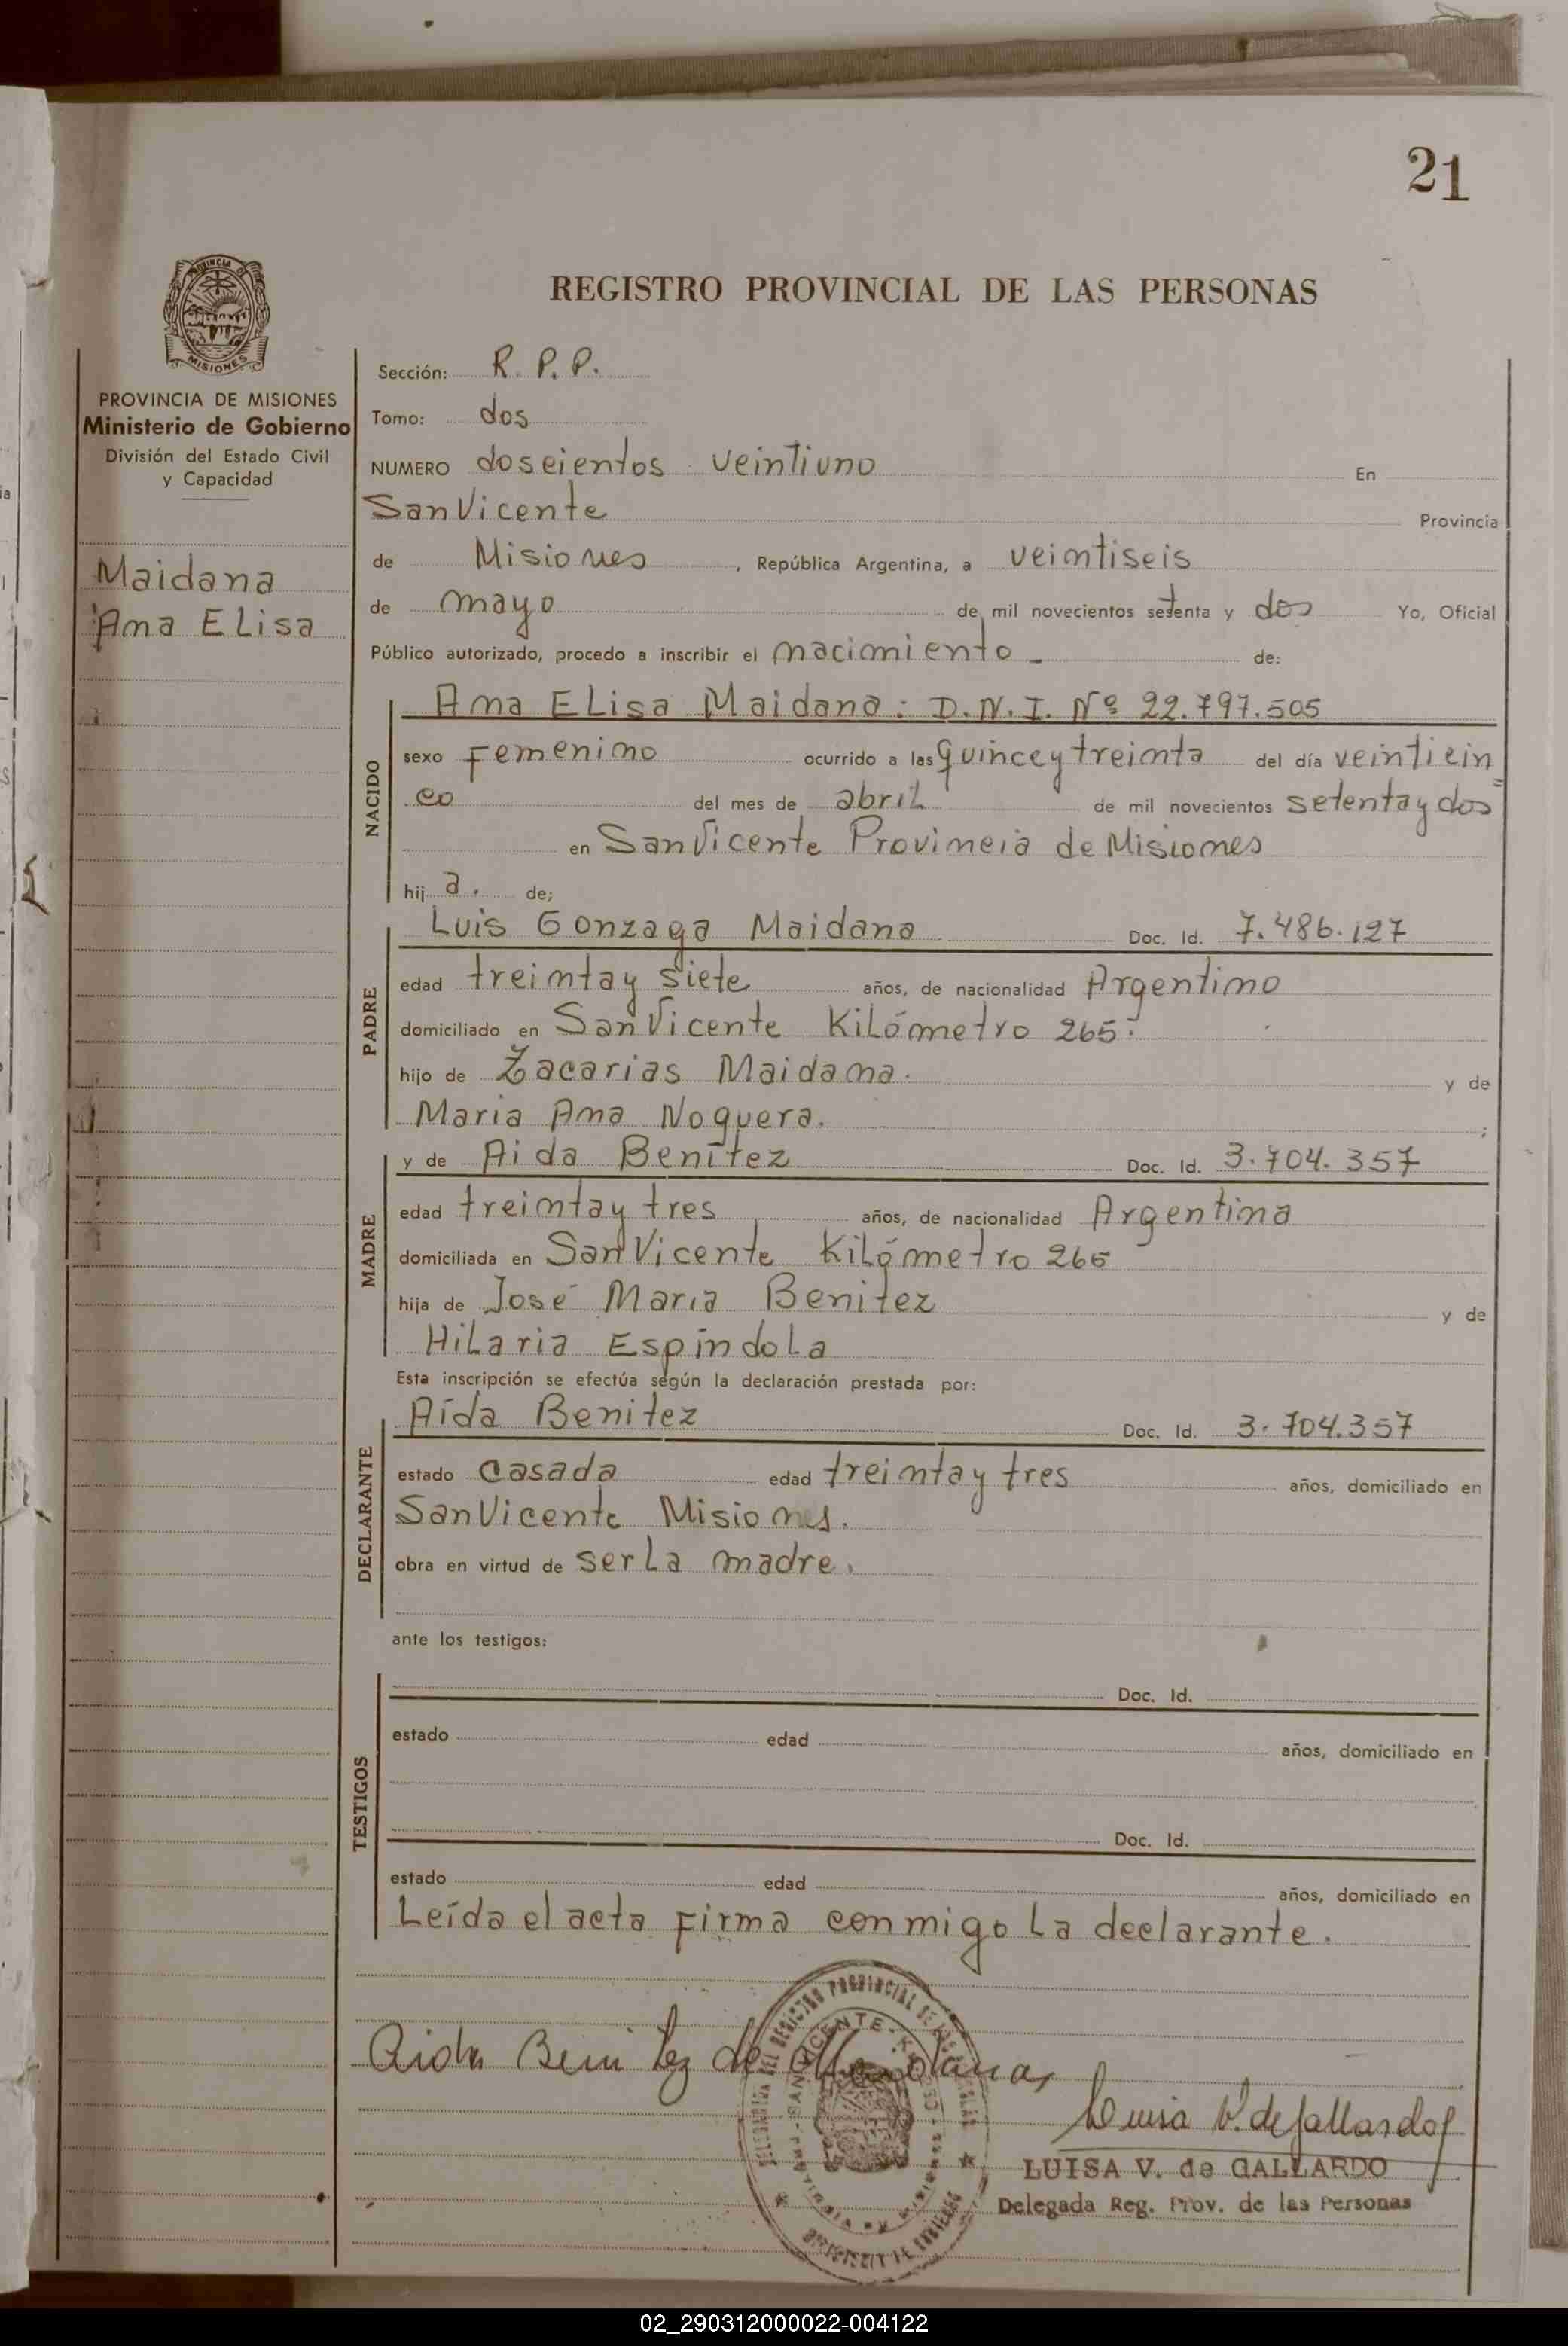 21
PROVINCIA DE
MISIONES
REGISTRO PROVINCIAL DE LAS PERSONAS
PROVINCIA DE MISIONES
Ministerio de Gobierno
División del Estado Civil
y Capacidad
Maidana
Ana Elisa
Sección: R. P. P.
Tomo: dos
NUMERO doscientos veintiuno En
San Vicente Provincia
de Misiones, República Argentina, a veintiseis
de mayo de mil novecientos setenta y dos Yo, Oficial
Público autorizado, procedo a inscribir el nacimiento _ de:
NACIDO
Ana Elisa Maidana: D.N.I. Nº 22.797.505
sexo Femenino ocurrido a las quince y treinta del día veinticin=
co del mes de abril de mil novecientos setenta y dos
en San Vicente Provincia de Misiones
hij a. de;
PADRE
Luis Gonzaga Maidana Doc. Id. 7.486.127
edad treinta y siete años, de nacionalidad Argentino
domiciliado en San Vicente Kilómetro 265.
hijo de Zacarias Maidana. y de
Maria Ana Noguera. ;
MADRE
y de Aida Benítez Doc. Id. 3.704.357
edad treinta y tres años, de nacionalidad Argentina
domiciliada en San Vicente Kilómetro 265
hija de José María Benitez y de
Hilaria Espíndola
Esta inscripción se efectúa según la declaración prestada por:
DECLARANTE
Aída Benitez Doc. Id. 3.704.357
estado casada edad treinta y tres años, domiciliado en
San Vicente Misiones.
obra en virtud de ser la madre.
ante los testigos:
TESTIGOS
Doc. Id.
estado edad años, domiciliado en
Doc. Id.
estado edad años, domiciliado en
Leída el acta firma conmigo la declarante.
Aida Beni tez de
DEL REGISTRO PROVINCIAL DE LAS
SAN VICENTE
Luisa V. de Gallardo
LUISA V. de GALLARDO
Delegada Reg. Prov. de las Personas
02_290312000022-004122